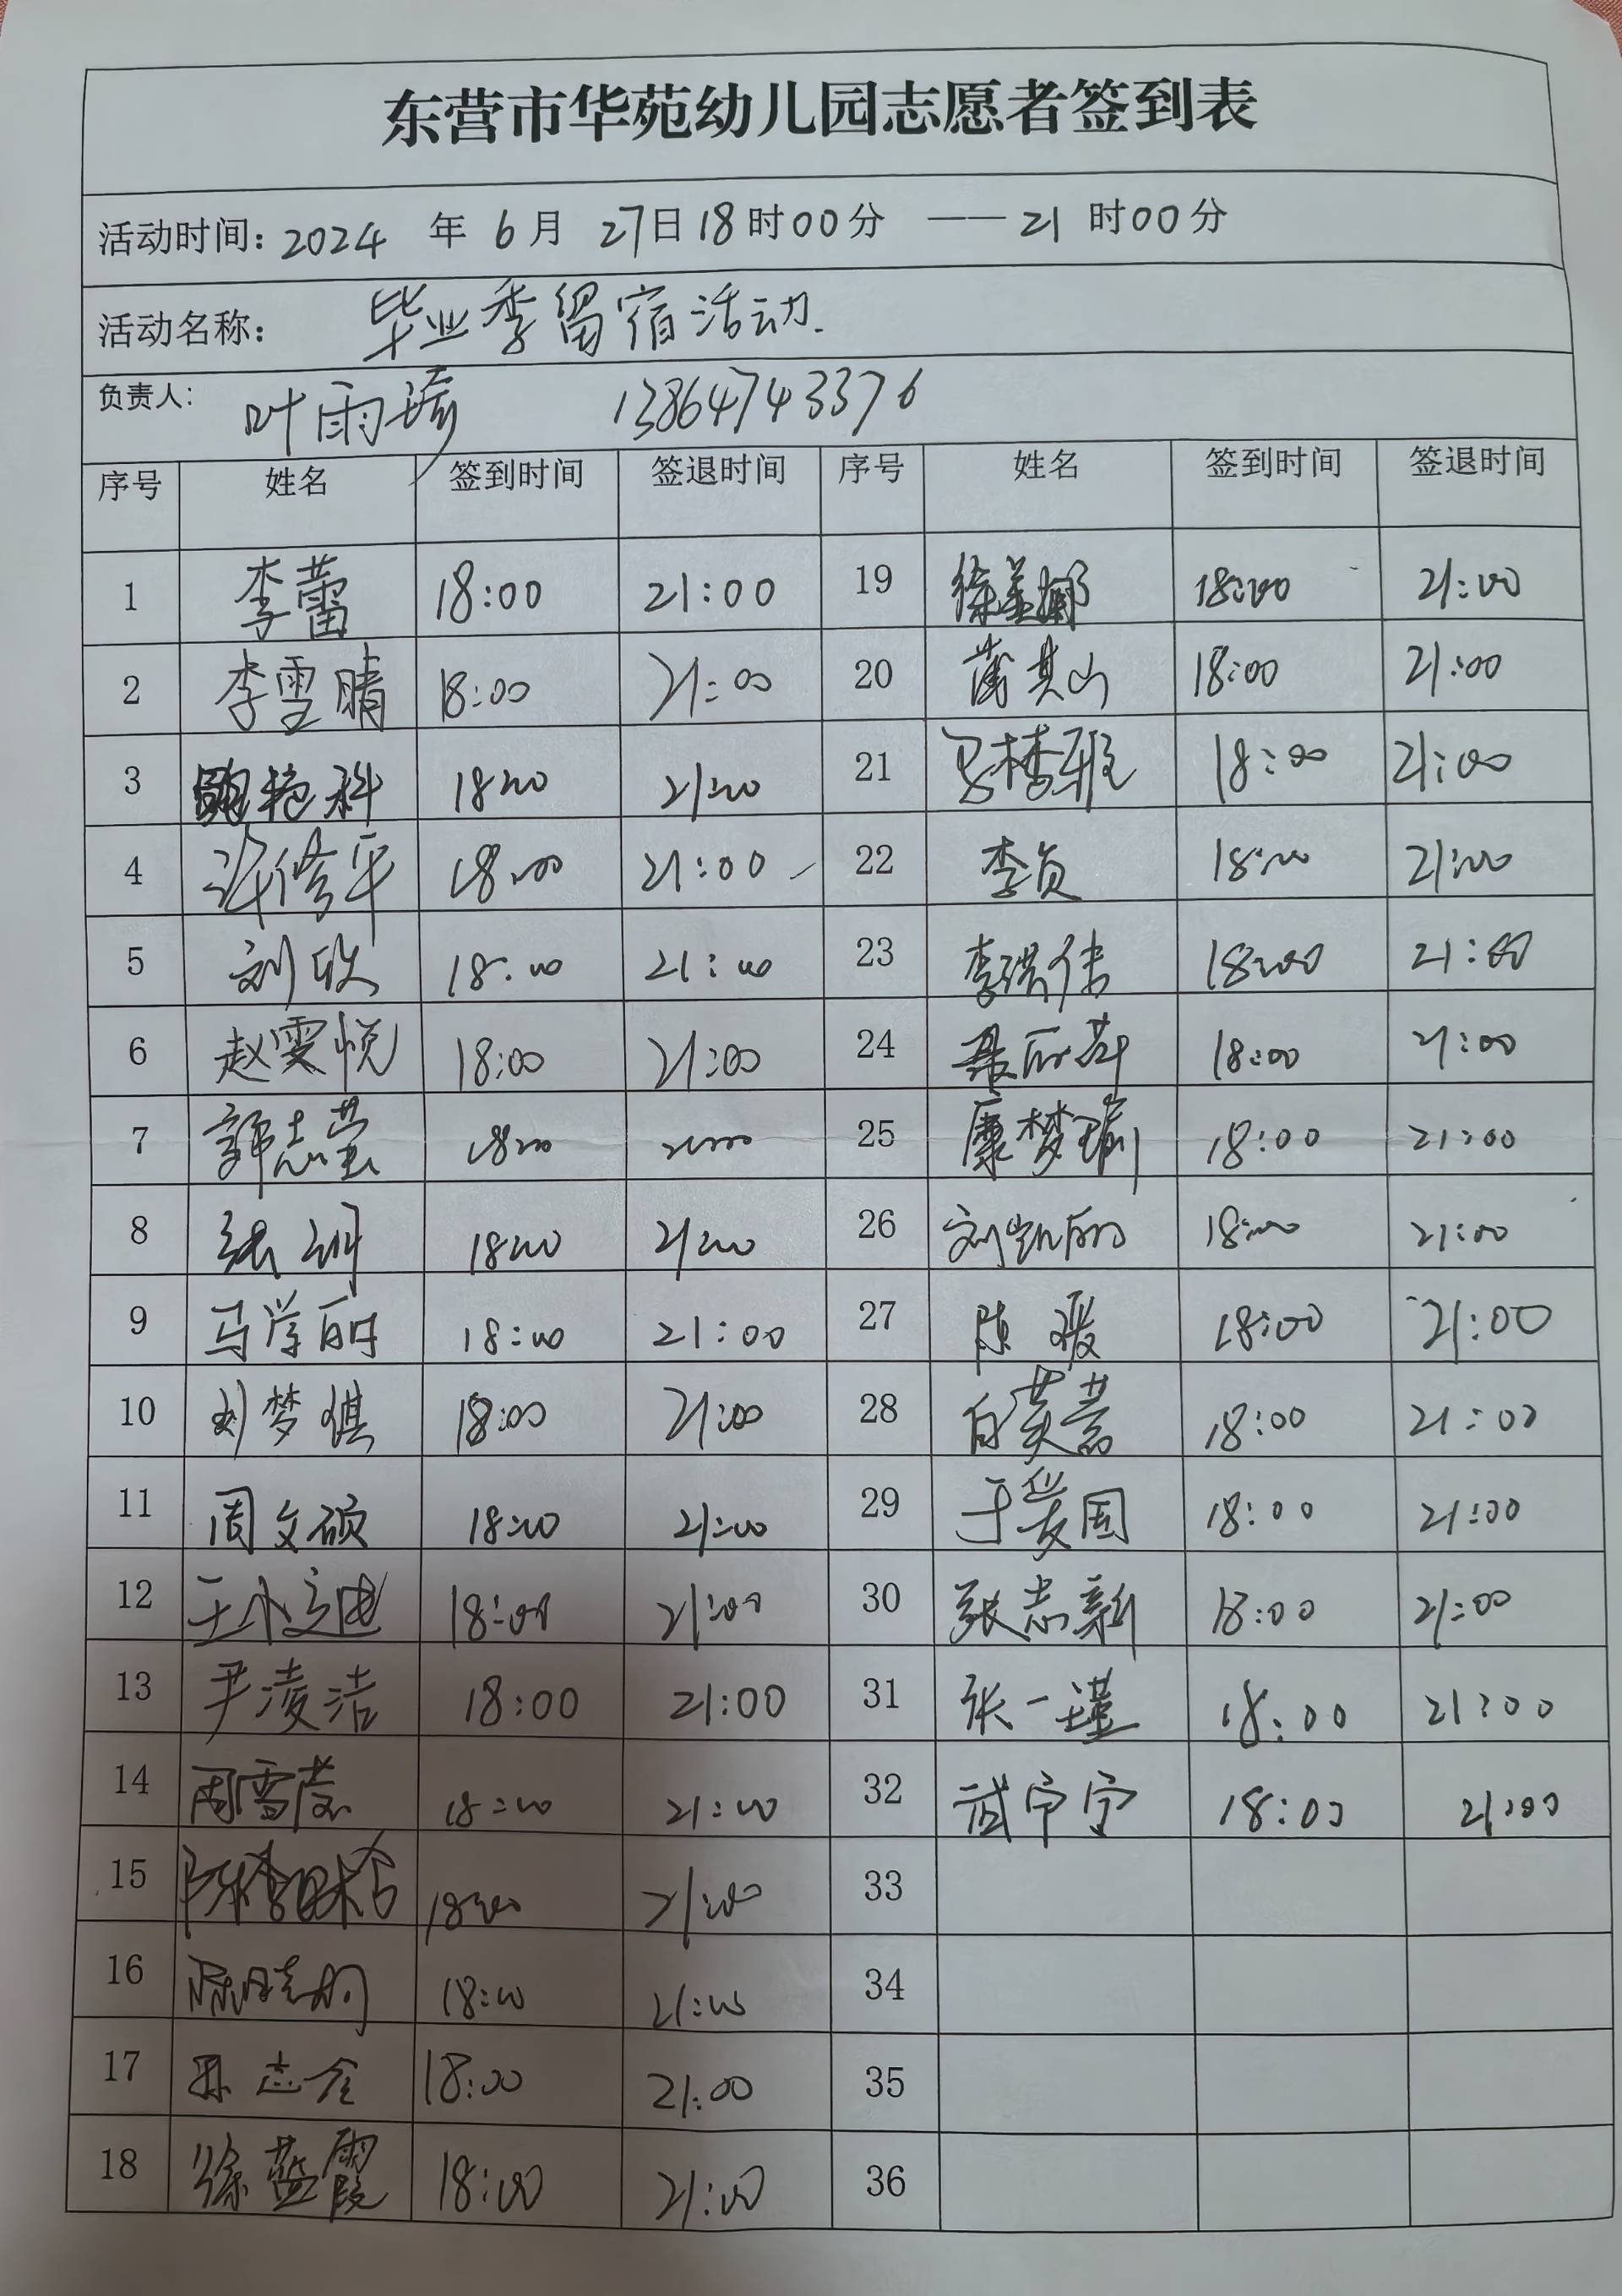 东营市华苑幼儿园志愿者签到表
活动时间：2024 年 6月 27日18时00分 ——21 时00分
活动名称： 毕业季留宿活动.
负责人： 叶雨琦 13864743376
序号 姓名 签到时间 签退时间 序号 姓名 签到时间 签退时间
1 李蕾 18:00 21:00 19 18:00 21:00
2 李雪晴 18:00 21:00 20 蒲其山 18:00 21:00
3 18:00 21:00 21 马楼雅 18:00 21:00
4 许修平 18:00 21:00 22 李贞 18:00 21:00
5 刘欣 18:00 21:00 23 李洪伟 18:00 21:00
6 赵雯悦 18:00 21:00 24 聂丽萍 18:00 21:00
7 郭志莹 18:00 21:00 25 康梦瑜 18:00 21:00
8 18:00 21:00 26 刘凯丽 18:00 21:00
9 马学丽 18:00 21:00 27 陈瑷 18:00 21:00
10 刘梦祺 18:00 21:00 28 白英嵩 18:00 21:00
11 周文硕 18:00 21:00 29 于爱国 18:00 21:00
12 18:00 21:00 30 张志新 18:00 21:00
13 尹凌洁 18:00 21:00 31 张一瑾 18:00 21:00
14 周雪 18:00 21:00 32 武宁宁 18:00 21:00
15 18:00 21:00 33
16 18:00 21:00 34
17 18:00 21:00 35
18 徐蓝霞 18:00 21:00 36